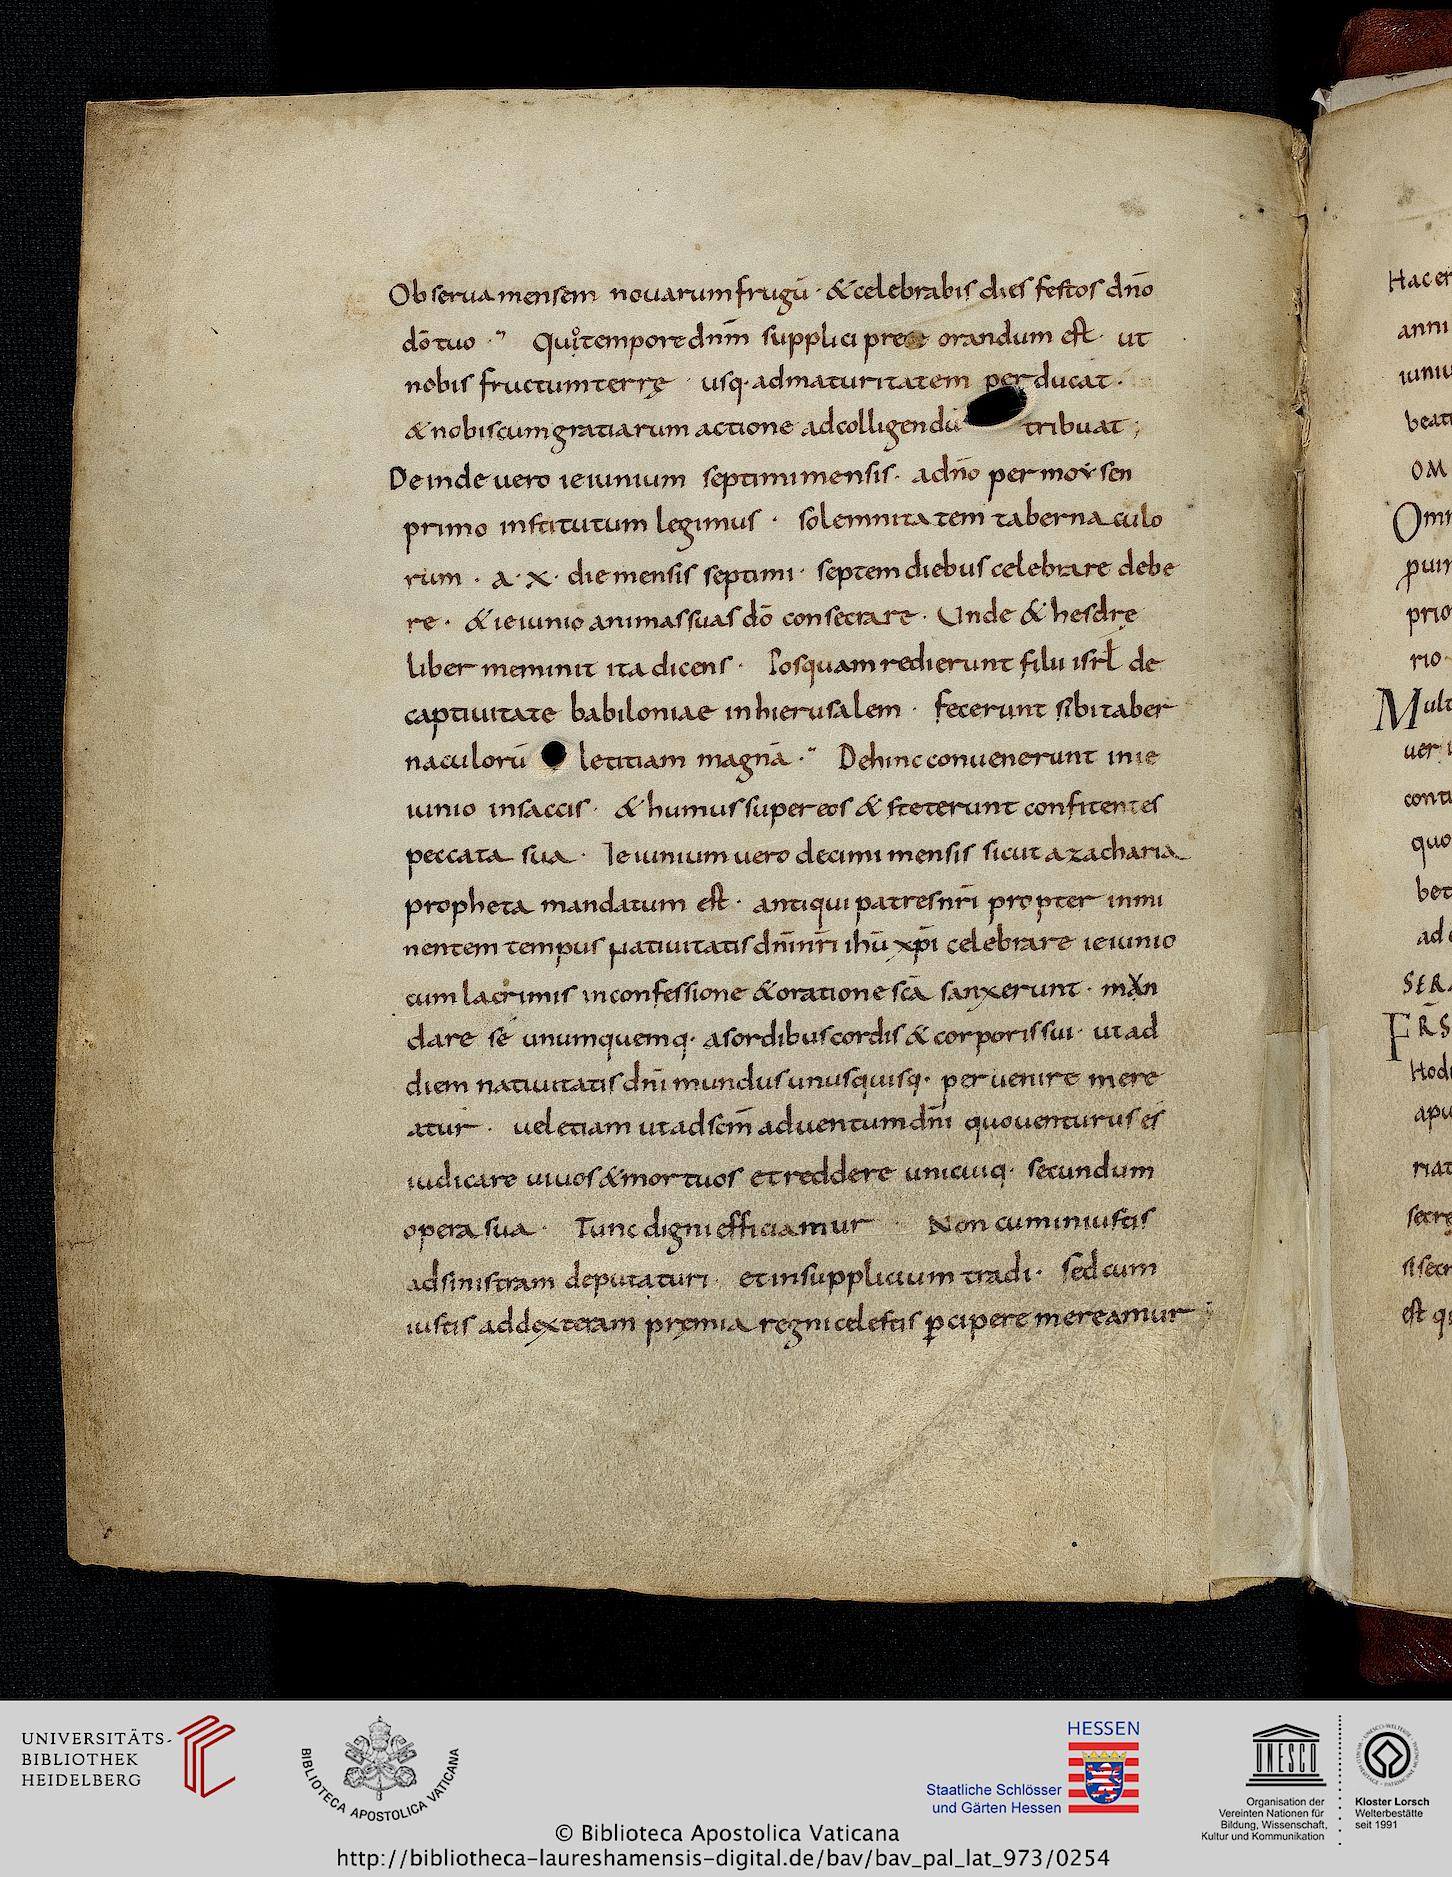 Obserua mensem nouarum frugū · & celebrabis dies festos dn̄o
dō tuo · Quo tempore dnm̄ supplici prece orandum est · ut
nobis fructum terrę usq· ad maturitatem perducat ·
& nobis cum gratiarum actione ad colligendū tribuat ;
Deinde uero ieiunium septimi mensis · ad n̄o per moysen
primo institutum legimus · solemnitatem tabernaculo
rum · a · x · die mensis septimi · septem diebus celebrare debe
re · & ieiunio animas suas dō consecrare · Unde & hesdrę
liber meminit ita dicens · Posquam redierunt filii isrł de
captiuitate babiloniae in hierusalem · fecerunt sibi taber
naculorū letitiam magnā · Dehinc conuenerunt in ie
iunio in saccis · & humus super eos & steterunt confitentes
peccata sua · Ieiunium uero decimi mensis sicut a zacharia
propheta mandatum est · antiqui patres nr̄i propter inmi
nentem tempus natiuitatis dn̄i nr̄i ihū xp̄i celebrare ieiunio
cum lacrimis in confessione & oratione scā sanxerunt · mun
dare se unumquemq· a sordibus cordis & corporis sui · ut ad
diem natiuitatis dn̄i mundus unusquisq· peruenire mere
atur · uel etiam ut ad scm̄ aduentum dn̄i quo uenturus ē
iudicare uiuos & mortuos et reddere unicuiq· secundum
opera sua · Tunc digni efficiamur · Non cum iniustis
ad sinistram deputaturi · et in supplicium tradi · sed cum
iustis ad dexteram pręmia regni celestis ꝑcipere mereamur
Hac er
anni
iuniu
beati
om
Omn
puin
prio
rio
Mult
uer i
conti
quo
bet
ad
SER
FRS
Hod
apu
riat
secre
si secr
est qu
UNIVERSITÄTS-
BIBLIOTHEK
HEIDELBERG
BIBLIOTECA APOSTOLICA VATICANA
HESSEN
Staatliche Schlösser
und Gärten Hessen
UNESCO
Organisation der
Vereinten Nationen für
Bildung, Wissenschaft,
Kultur und Kommunikation
Kloster Lorsch
Welterbestätte
seit 1991
© Biblioteca Apostolica Vaticana
http://bibliotheca-laureshamensis-digital.de/bav/bav_pal_lat_973/0254